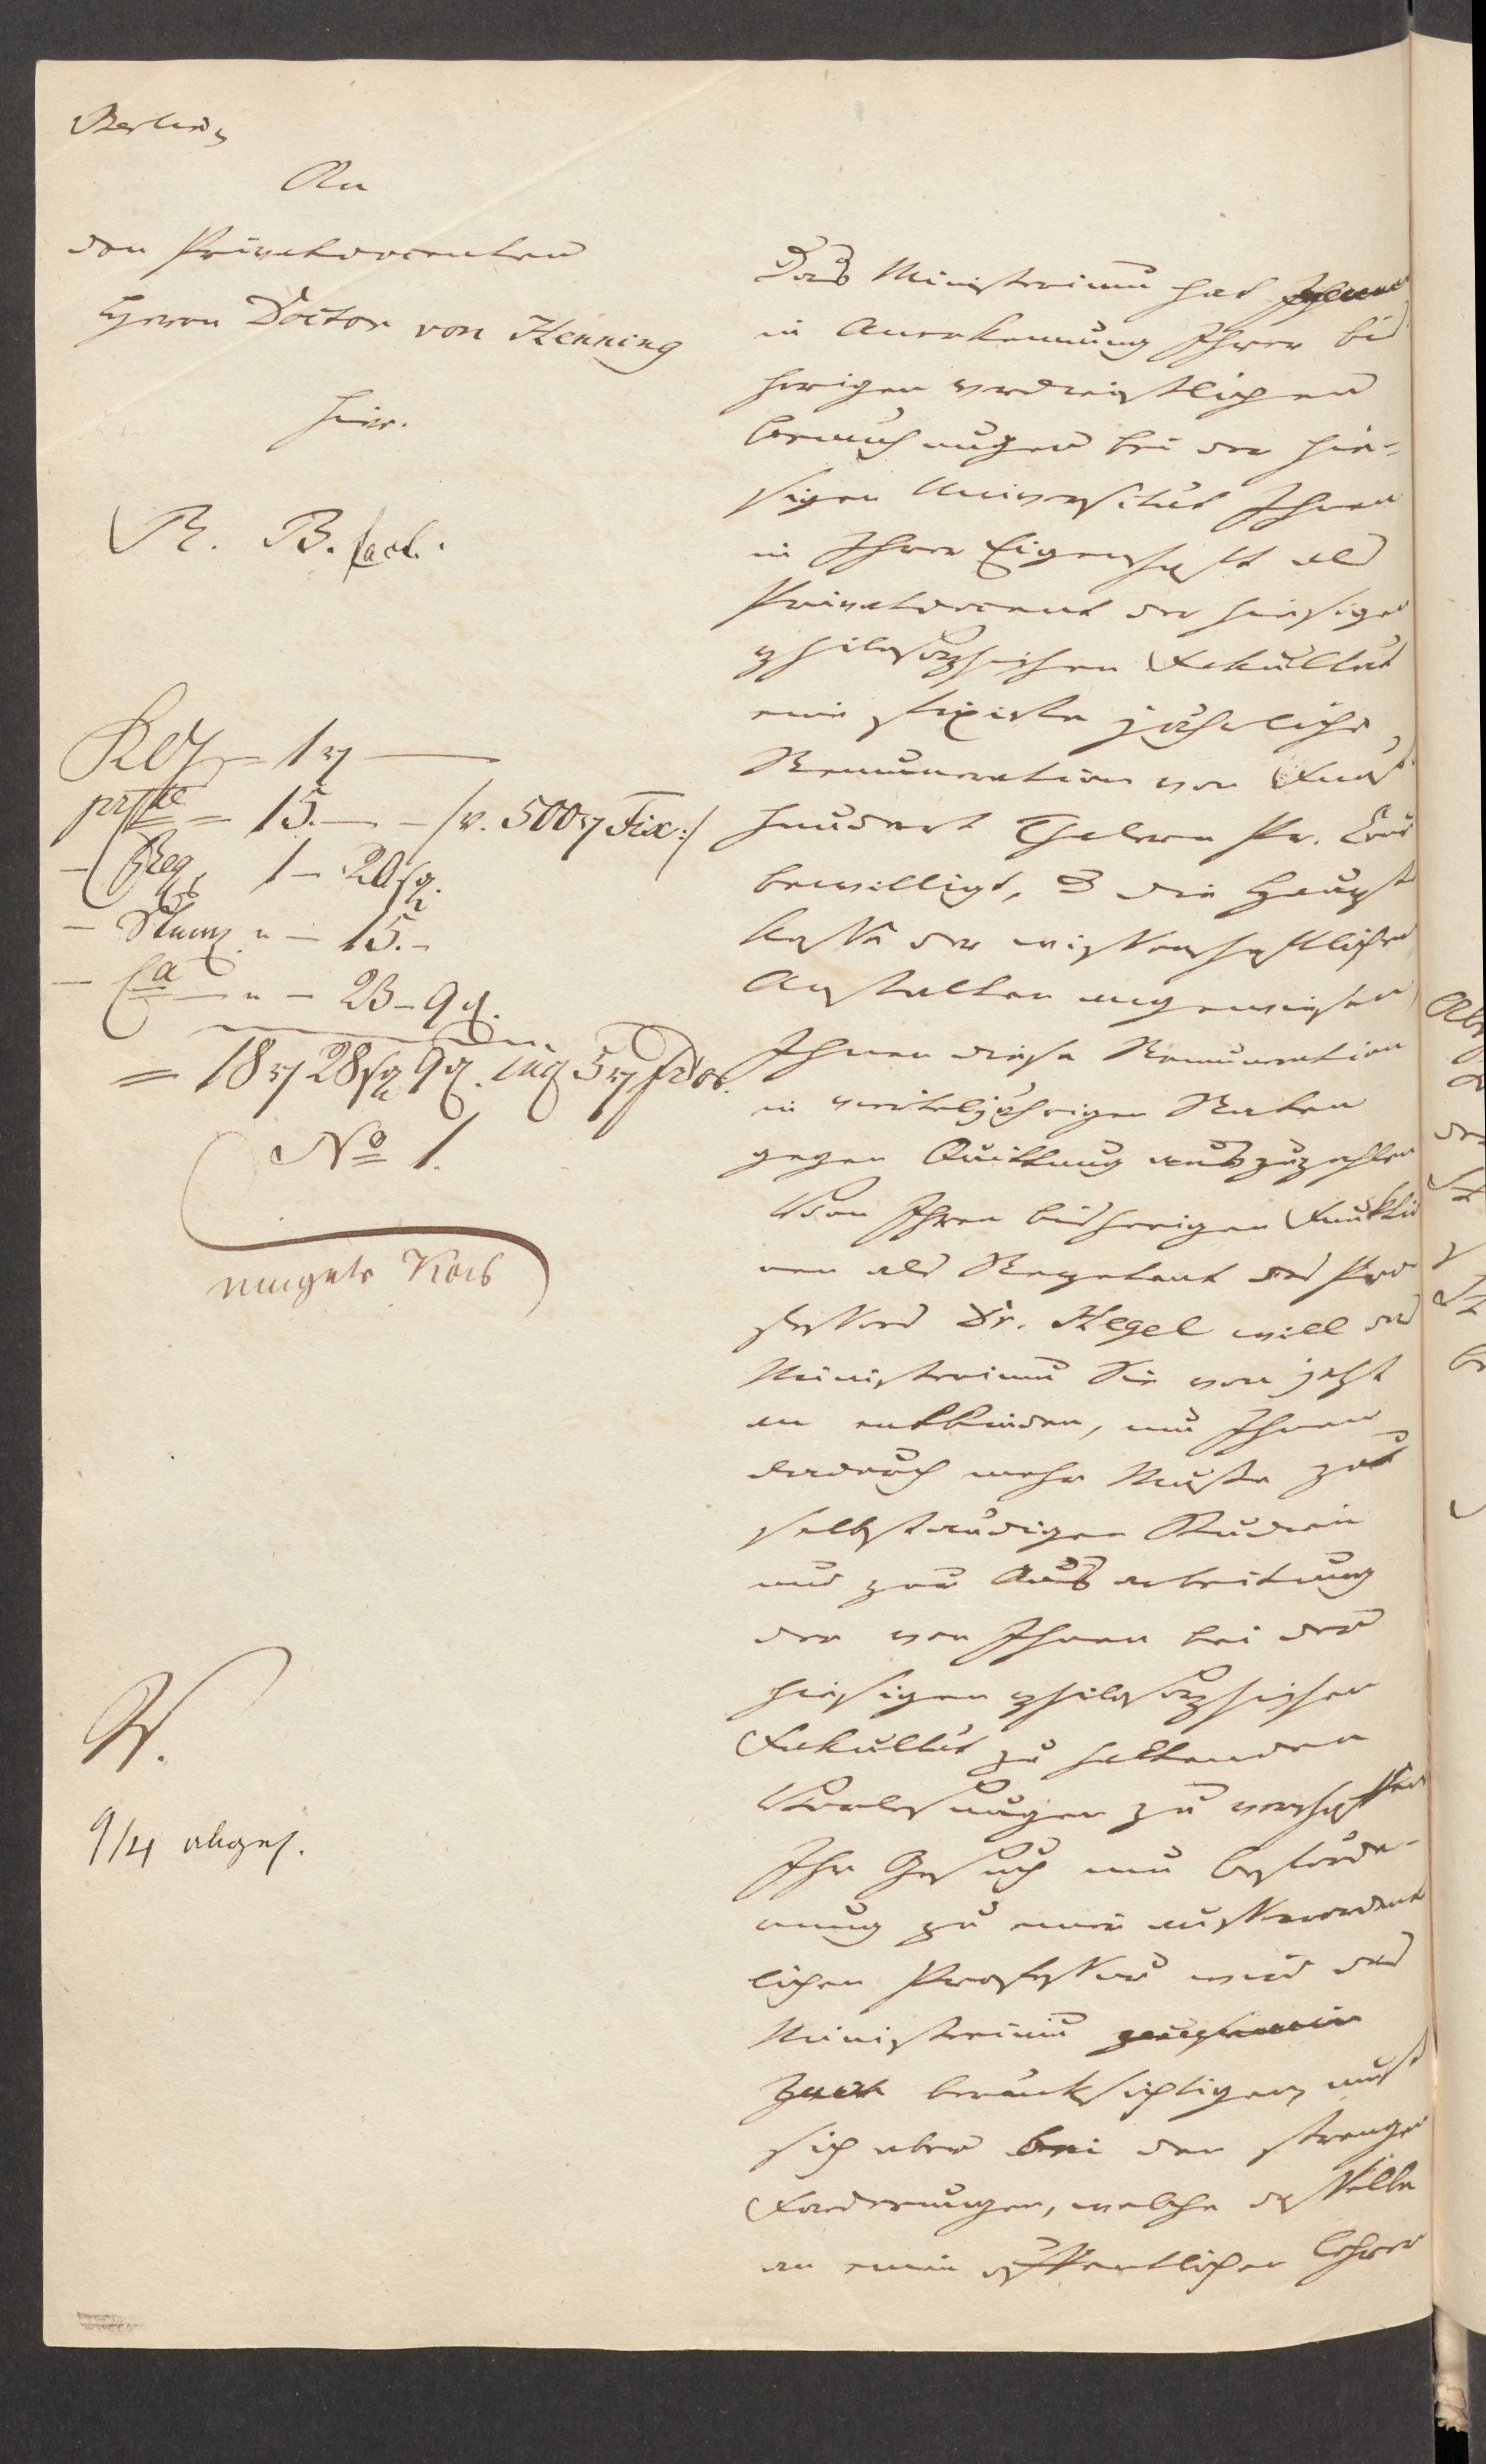 Berlin,
An
den Privatdocenten
Herrn Doctor von Henning
hier.
R. B. fact.
1 rt
15. — /v. 500 rt Fix:/
Reg 1 — 20 sg.
— Stemp " — 15. —
— " — 23 — 9 d.
= 18 rt 28 sg 9 d. 5 rt
No 1.
W.
9/4 abges.
Das Ministerium hat Ihnen
in Anerkennung Ihrer bis
herigen verdienstlichen
Bemühungen bei der hie-
sigen Universität Ihnen
in Ihrer Eigenschaft als
Privatdocent der hiesigen
philosophischen Fakultät
eine fixirte jährliche
Remuneration von Fünf
hundert Thalern Pr. Cour
bewilligt, & die Haupt
Kasse der wissenschaftlichen
Anstalten angewiesen
Ihnen diese Remuneration
in vierteljährigen Raten
gegen Quittung auszuzahlen
Von Ihren bisherigen Funktio
nen als Repetent des Pro
fessors Dr. Hegel will das
Ministerium Sie von jetzt
an entbinden, um Ihnen
dadurch mehr Muße zu
selbständigen Studien
und zur Ausarbeitung
der von Ihnen bei der
hiesigen philosophischen
Fakultät zu haltenden
Vorlesungen zu verschaffen
Ihr Gesuch um Beförde-
rung zu einer außerordent
lichen Professur wird das
Ministerium
zwar berücksichtigen, muß
sich aber bei den strengen
Forderungen, welche dasselbe
an einen öffentlichen Lehrer